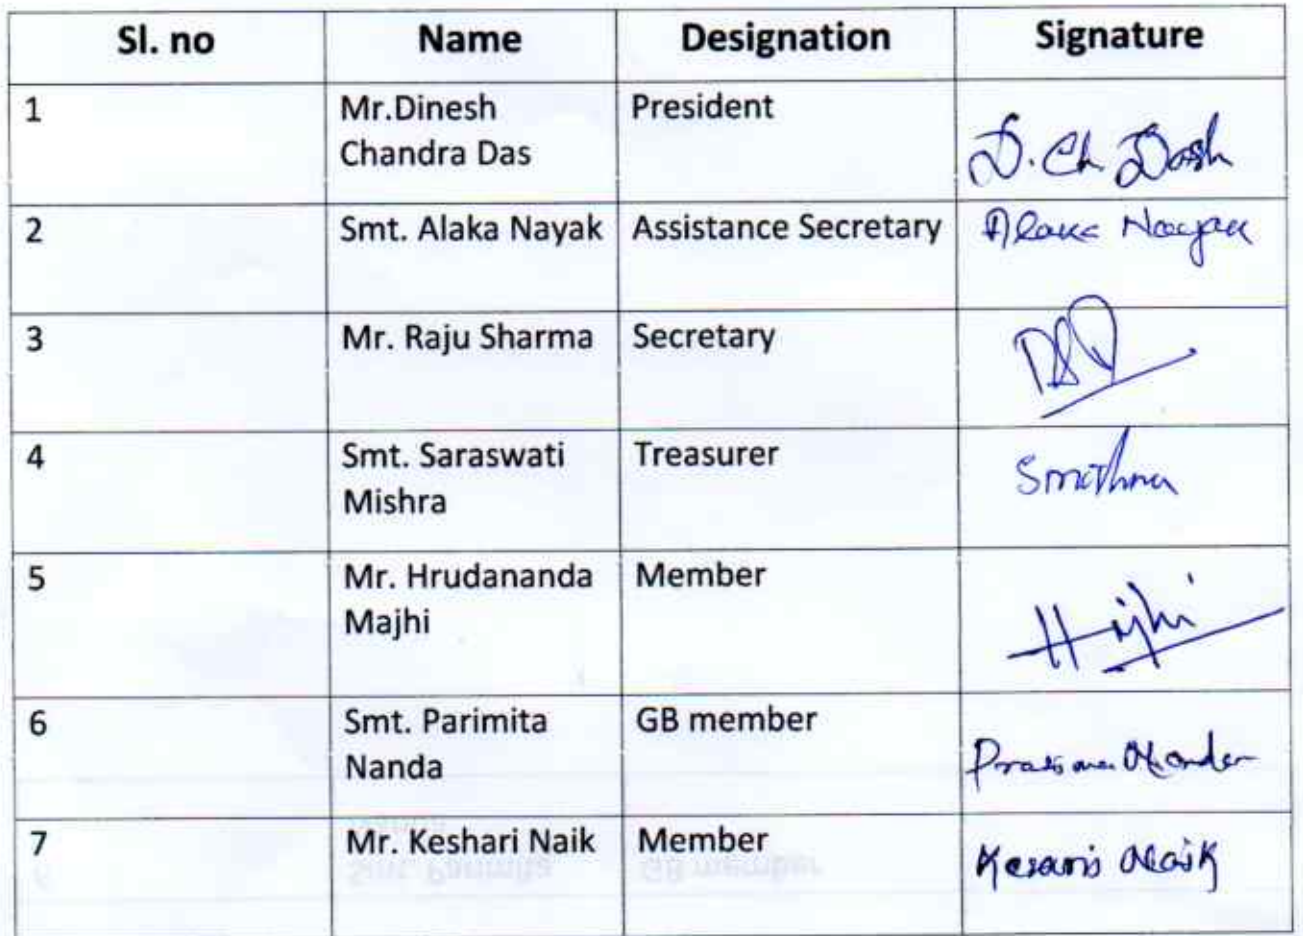 Sl. no Name Designation Signature
1 Mr.Dinesh President
Chandra Das D. Ch. Dash
2 Smt. Alaka Nayak Assistance Secretary Alaka Nayak
3 Mr. Raju Sharma Secretary
4 Smt. Saraswati Treasurer
Mishra
5 Mr. Hrudananda Member
Majhi
6 Smt. Parimita GB member
Nanda
7 Mr. Keshari Naik Member Kesari Naik